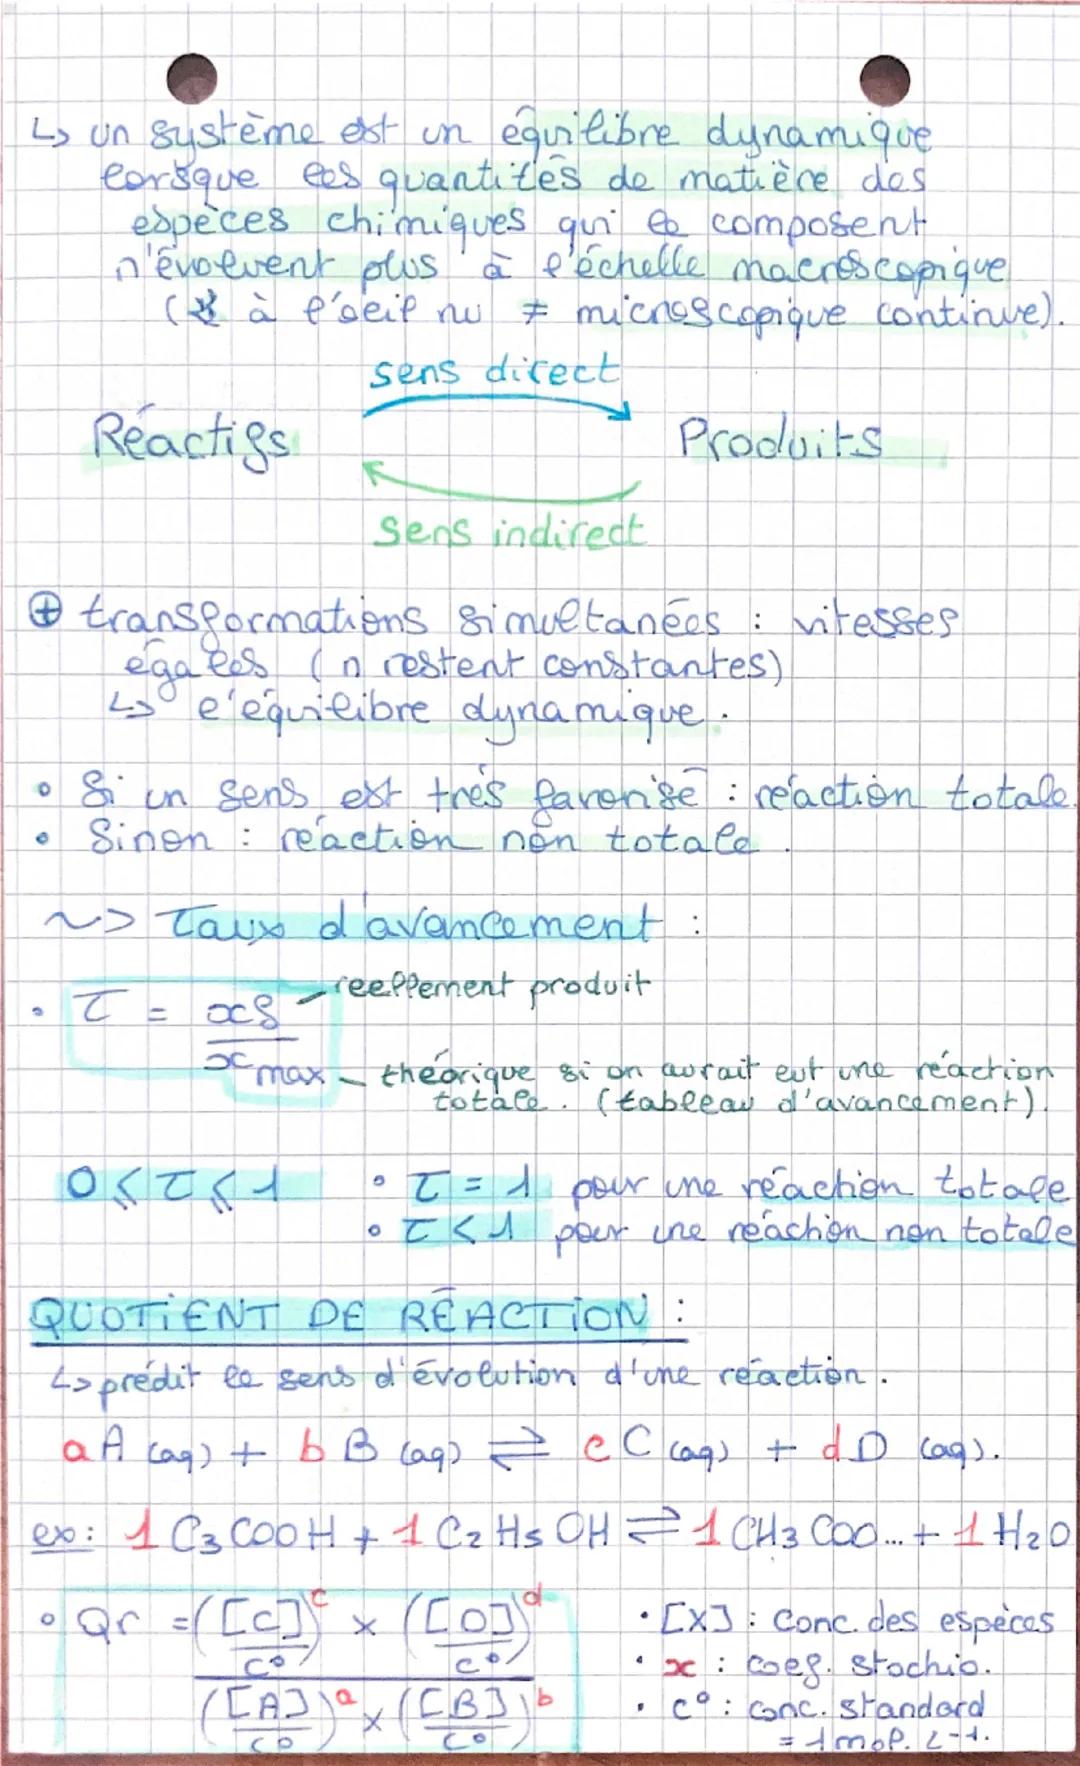 ↳ un système est un équilibre dynamique
lorsque les quantités de matière des
espèces chimiques qui le composent
n'évoluent plus à l'échelle macroscopique
( à l'oeil nu ≠ microscopique continue).
sens direct
Réactifs Produits
Sens indirect
⊕ transformations simultanées : vitesses
égales (n restent constantes)
↳ l'équilibre dynamique.
• Si un sens est très favorisé : réaction totale.
• Sinon : réaction non totale.
~> Taux d'avancement :
• τ = xf / xmax
réellement produit
théorique si on aurait eut une réaction
totale. (tableau d'avancement).
0 ⩽ τ ⩽ 1 • τ = 1 pour une réaction totale
• τ < 1 pour une réaction non totale
QUOTIENT DE RÉACTION :
↳ prédit le sens d'évolution d'une réaction.
a A (aq) + b B (aq) ⇌ c C (aq) + d D (aq).
ex: 1 C3COOH + 1 C2H5OH ⇌ 1 CH3COO... + 1 H2O
• Qr = ([C]/c°)^c × ([D]/c°)^d / ([A]/c°)^a × ([B]/c°)^b
• [X] : conc. des espèces
• x : coef. stochio.
• c° : conc. standard
= 1 mol. L-1.